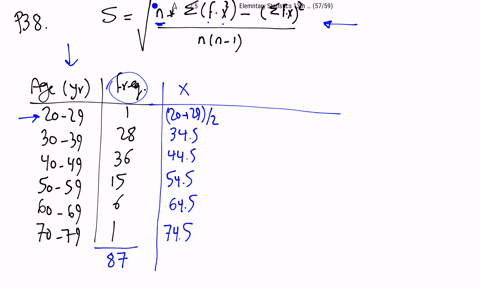 Elemntary Statistics 13th ... (57/59)
P38. S = √ n * Σ(f.x²) - (Σf.x)²
n(n-1)
Age (yr) Freq. X
20-29 1 (20+29)/2
30-39 28 34.5
40-49 36 44.5
50-59 15 54.5
60-69 6 64.5
70-79 1 74.5
87